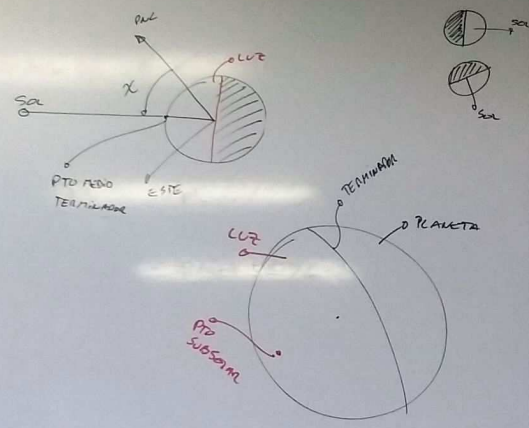 PNC
LUZ
SOL
χ
SOL
SOL
PTO MEDIO
TERMINADOR
ESTE
TERMINADOR
PLANETA
LUZ
PTO
SUBSOLAR